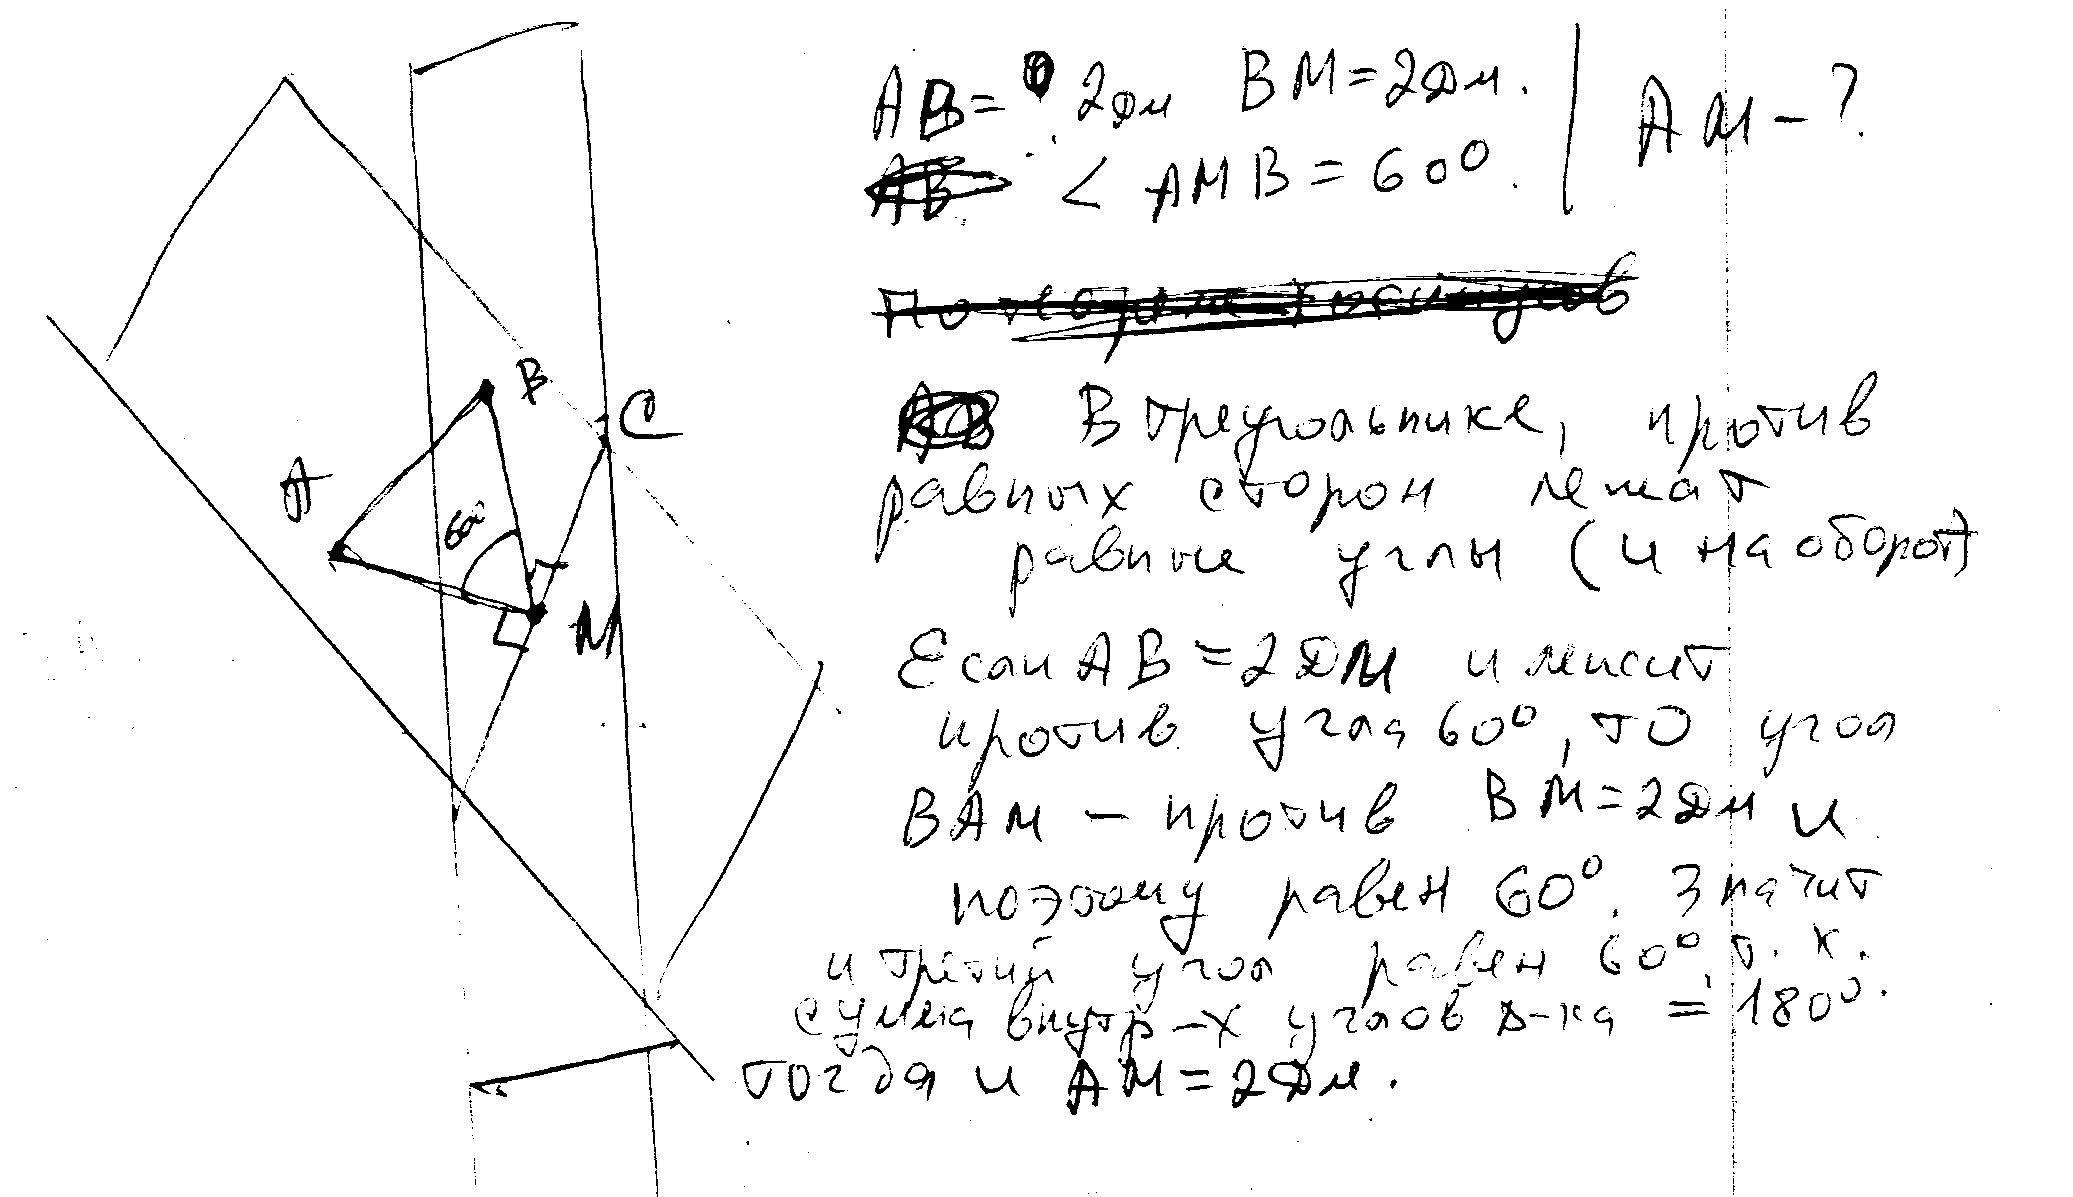 AB = 2дм BM = 2дм. | AM - ?
AB < AMB = 60°.
По теореме косинусов
В треугольнике, против
равных сторон лежат
равные углы (и наоборот)
Если AB = 2дм и лежит
против угла 60°, то угол
BAM - против BM = 2дм и
поэтому равен 60°. Значит
и третий угол равен 60°, т. к.
сумма внутр-х углов Δ-ка = 180°.
тогда и AM = 2дм.
B
C
A
60°
M